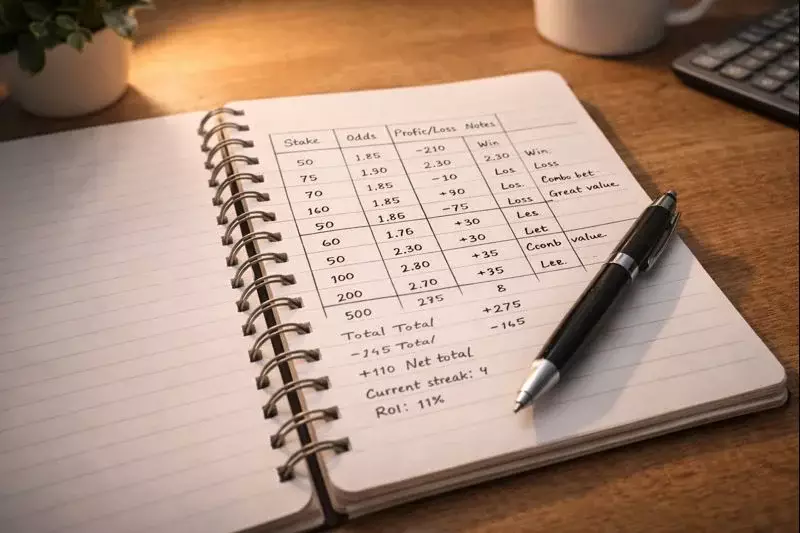 Stake Odds Profic/Loss Notes
50 1.85 -210 Win Win
75 1.90 2.30 2.30 Loss
70 1.85 -10 Los. Combo bet
160 1.85 +90 Los. Great value
50 1.86 -75 Loss
60 1.76 +30 Les
50 2.30 +30 Let value
100 2.30 +35
200 2.70 +35
500 275 8
Total Total +275
-145 Total -145
+110 Net total
Current streak: 4
RoI: 11%